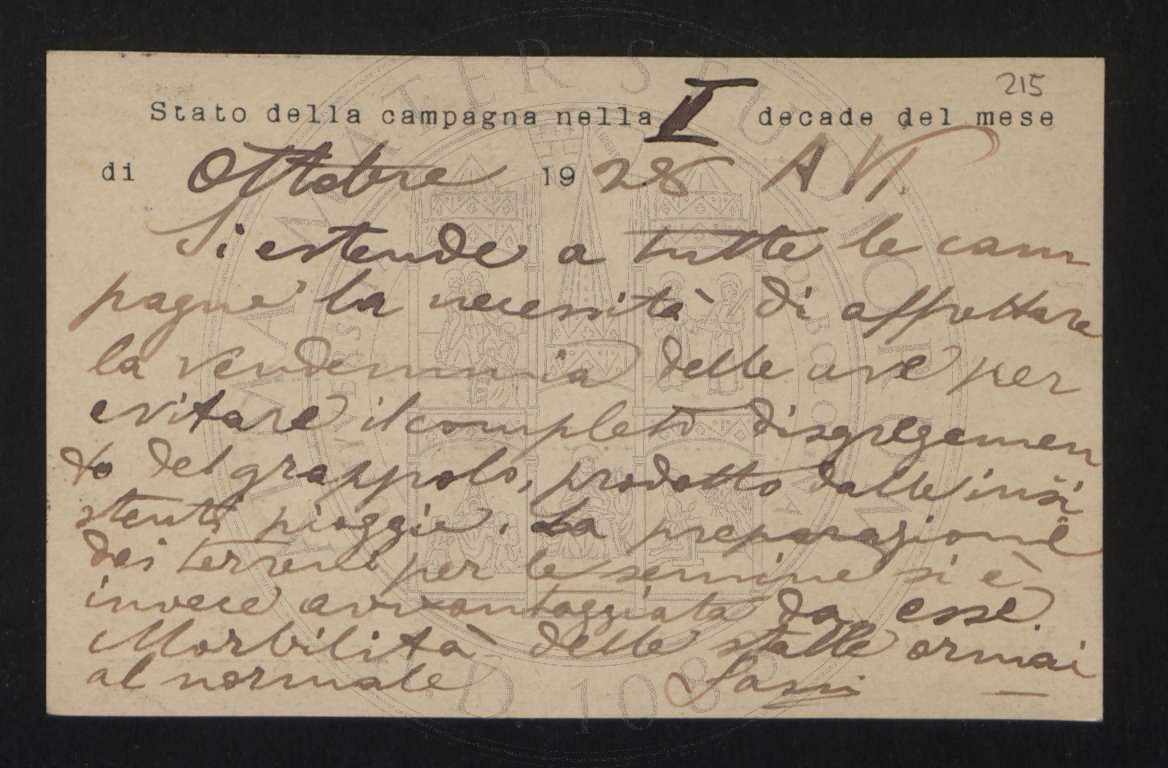 215
Stato della campagna nella I decade del mese
di Ottobre 1928 A VI.
Si estende a tutte le cam
pagne la necessità di affrettare
la vendemmia delle uve per
evitare il completo disgregamen
to del grappolo, prodotto dalle insi
stenti pioggie. La preparazione
dei terreni per le semine si è
invece avvantaggiata da esse.
Morbilità delle stalle ormai
al normale
ALMA MATER STUDIORUM
A.D. 1088